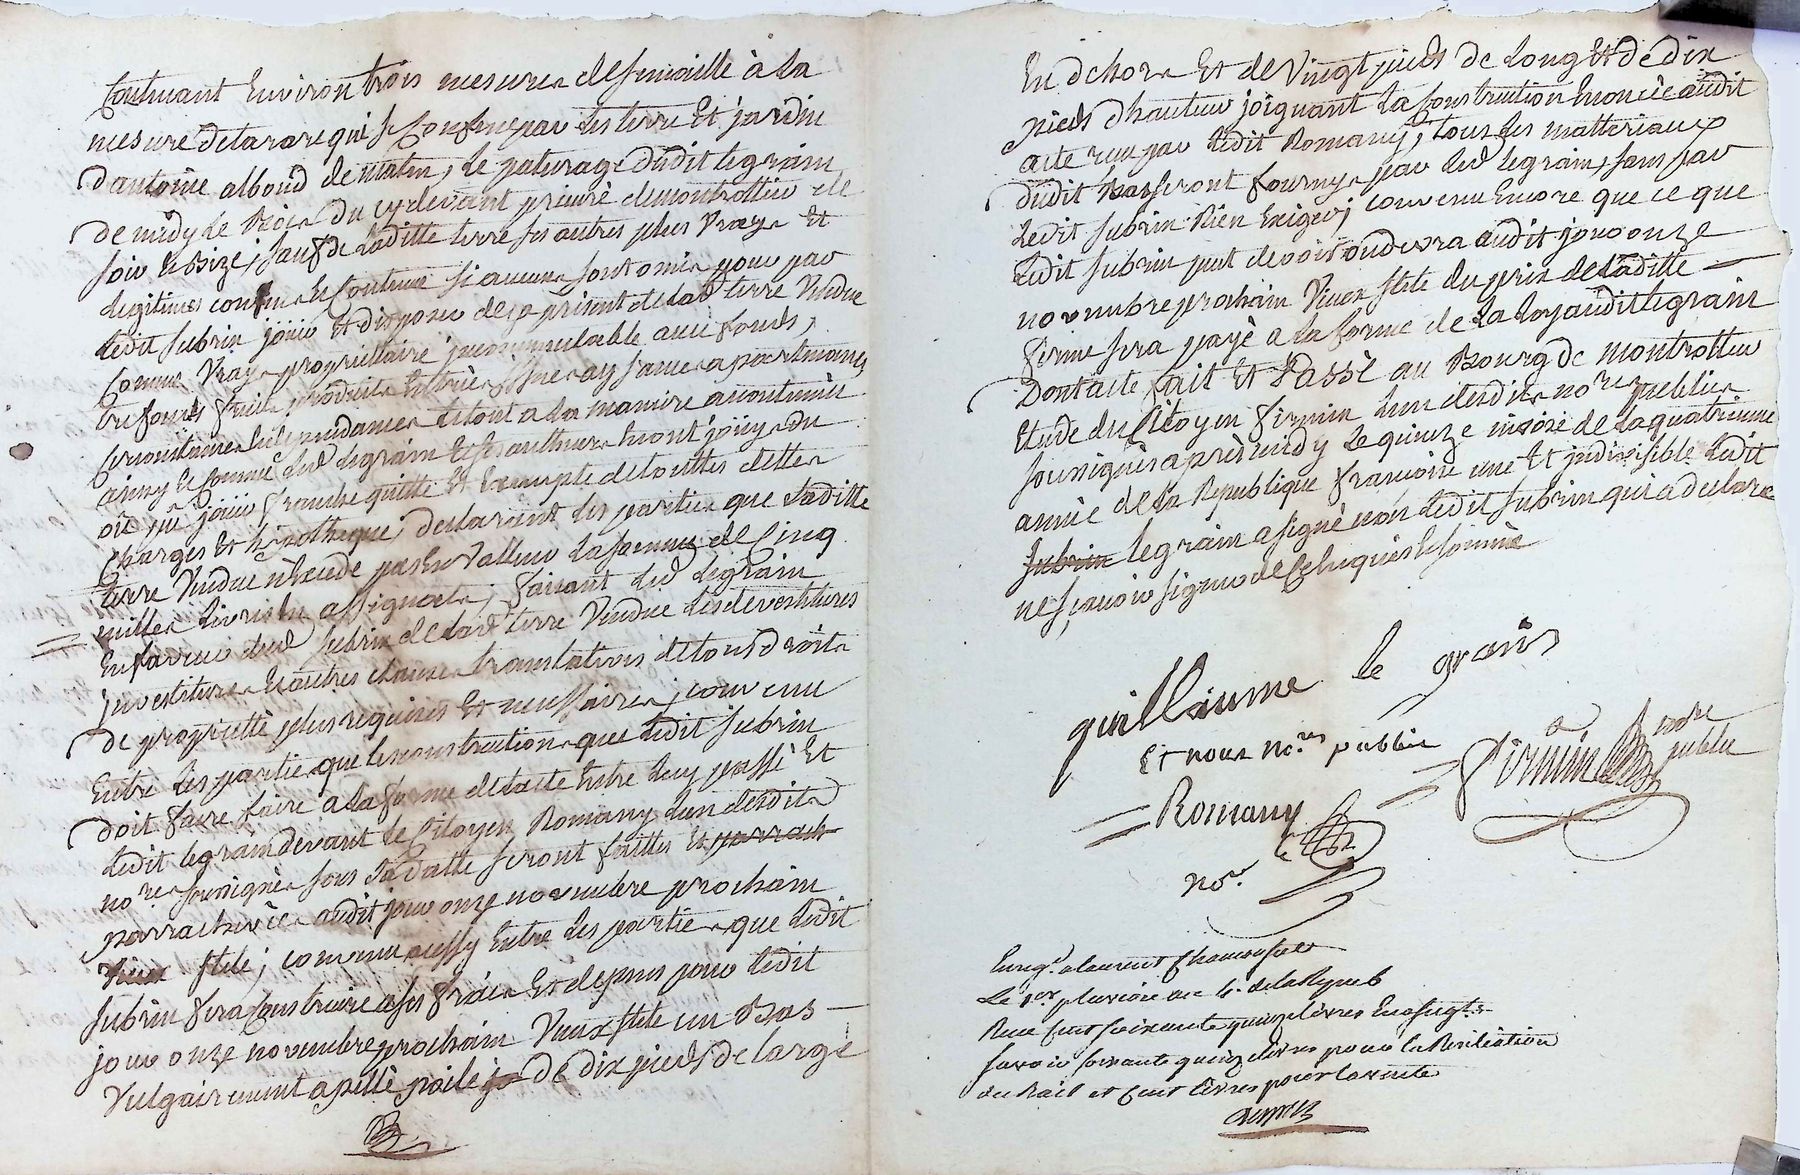 Contenant Environ trois mesures de semaille à la
mesure de tarare qui se Confine par les terre Et jardin
d'antoine alboud de matin, le paturage dudit legrain
de midy Le Bois du cy devant prieuré de montrottier de
soir Et Bize; sauf de Laditte terre ses autres plus Vrays Et
legitimes confins Et Contenu si aucuns sont omis pour par
Ledit subrin jouir Et disposer dez a present de lad terre Vendue
Comme Vray proprietaire incommutable avec fonds,
trefonds fruits produits Entrées issues aysances apartenances
Circonstances Et dependances Et tout a la maniere accoutumée
ainsy Et comme led Legrain Et ses autheurs En ont jouy du
ou pu jouir franche quitte Et Exempte de touttes dettes
Charges Et hipotheque; declarant les parties que Laditte
terre Vendue n'Excede pas En Valleur La somme de Cinq
milles Livres En assignats; faisant led Legrain
En faveur dud Subrin de lad terre Vendue les devestitures
Investitures Et autres clauses translatives de tous droits
de proprietté plus requises Et necessaires; convenu
Entre les parties que les constructions que Ledit subrin
doit faire faire a la forme de l'acte Entre Luy passé Et
Ledit legrain devant Le Citoyen Romany L'un desdits
no.res soussignés sous Sa datte seront faittes Et parrach
parrachevées audit jour onze novembre prochain
Vieux stile; convenu aussy Entre les parties que Ledit
Subrin fera Construire a ses frais Et depens pour Ledit
jour onze novembre prochain Vieux stile un Bas
Vulgairement apellé poile de dix pieds de large
En dehors Et de Vingt pieds de Long Et de dix
pieds d'hauteur joignant La Construction Enoncée audit
acte reçu par Ledit Romany; tous les matteriaux
dudit Bas seront fournys par Led legrain, sans par
Ledit subrin Rien Exiger; convenu Encore que ce que
Ledit subrin peut devoir ou devra audit jour onze
novembre prochain Vieux stile du prix de Laditte
ferme sera payé a la forme de La Loy audit legrain
Dont acte fait Et Passé au Bourg de montrottier
Etude du Citoyen firmin L'un desdits no.res publics
soussignés après midy Le quinze nivôse de La quatrieme
année de la Republique francoise une Et indivisible Ledit
Subrin legrain a signé non Ledit subrin qui a declaré
ne sçavoir signer de Ce Enquis Et sommé
guilliaume le grain
Et nous no.res publics
firmin no.re public
Romany
no.re
Enreg.é a laurent Chamousset
Le 1.er pluviose an 4.e de la Repub
Reçu Cent soixante quinze livres En assig.ts
savoir soixante quinze livres pour la Resiliation
du Bail et Cent livres pour la vente